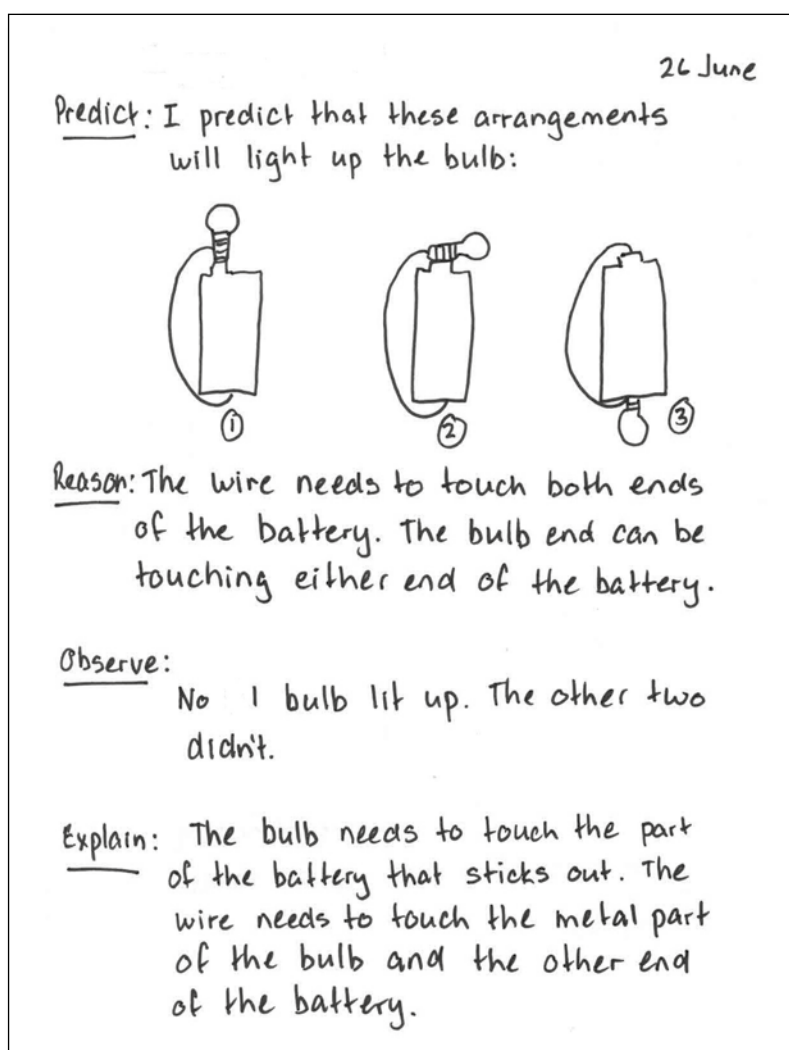 26 June
Predict: I predict that these arrangements
will light up the bulb:
1
2
3
Reason: The wire needs to touch both ends
of the battery. The bulb end can be
touching either end of the battery.
Observe:
No 1 bulb lit up. The other two
didn't.
Explain: The bulb needs to touch the part
of the battery that sticks out. The
wire needs to touch the metal part
of the bulb and the other end
of the battery.